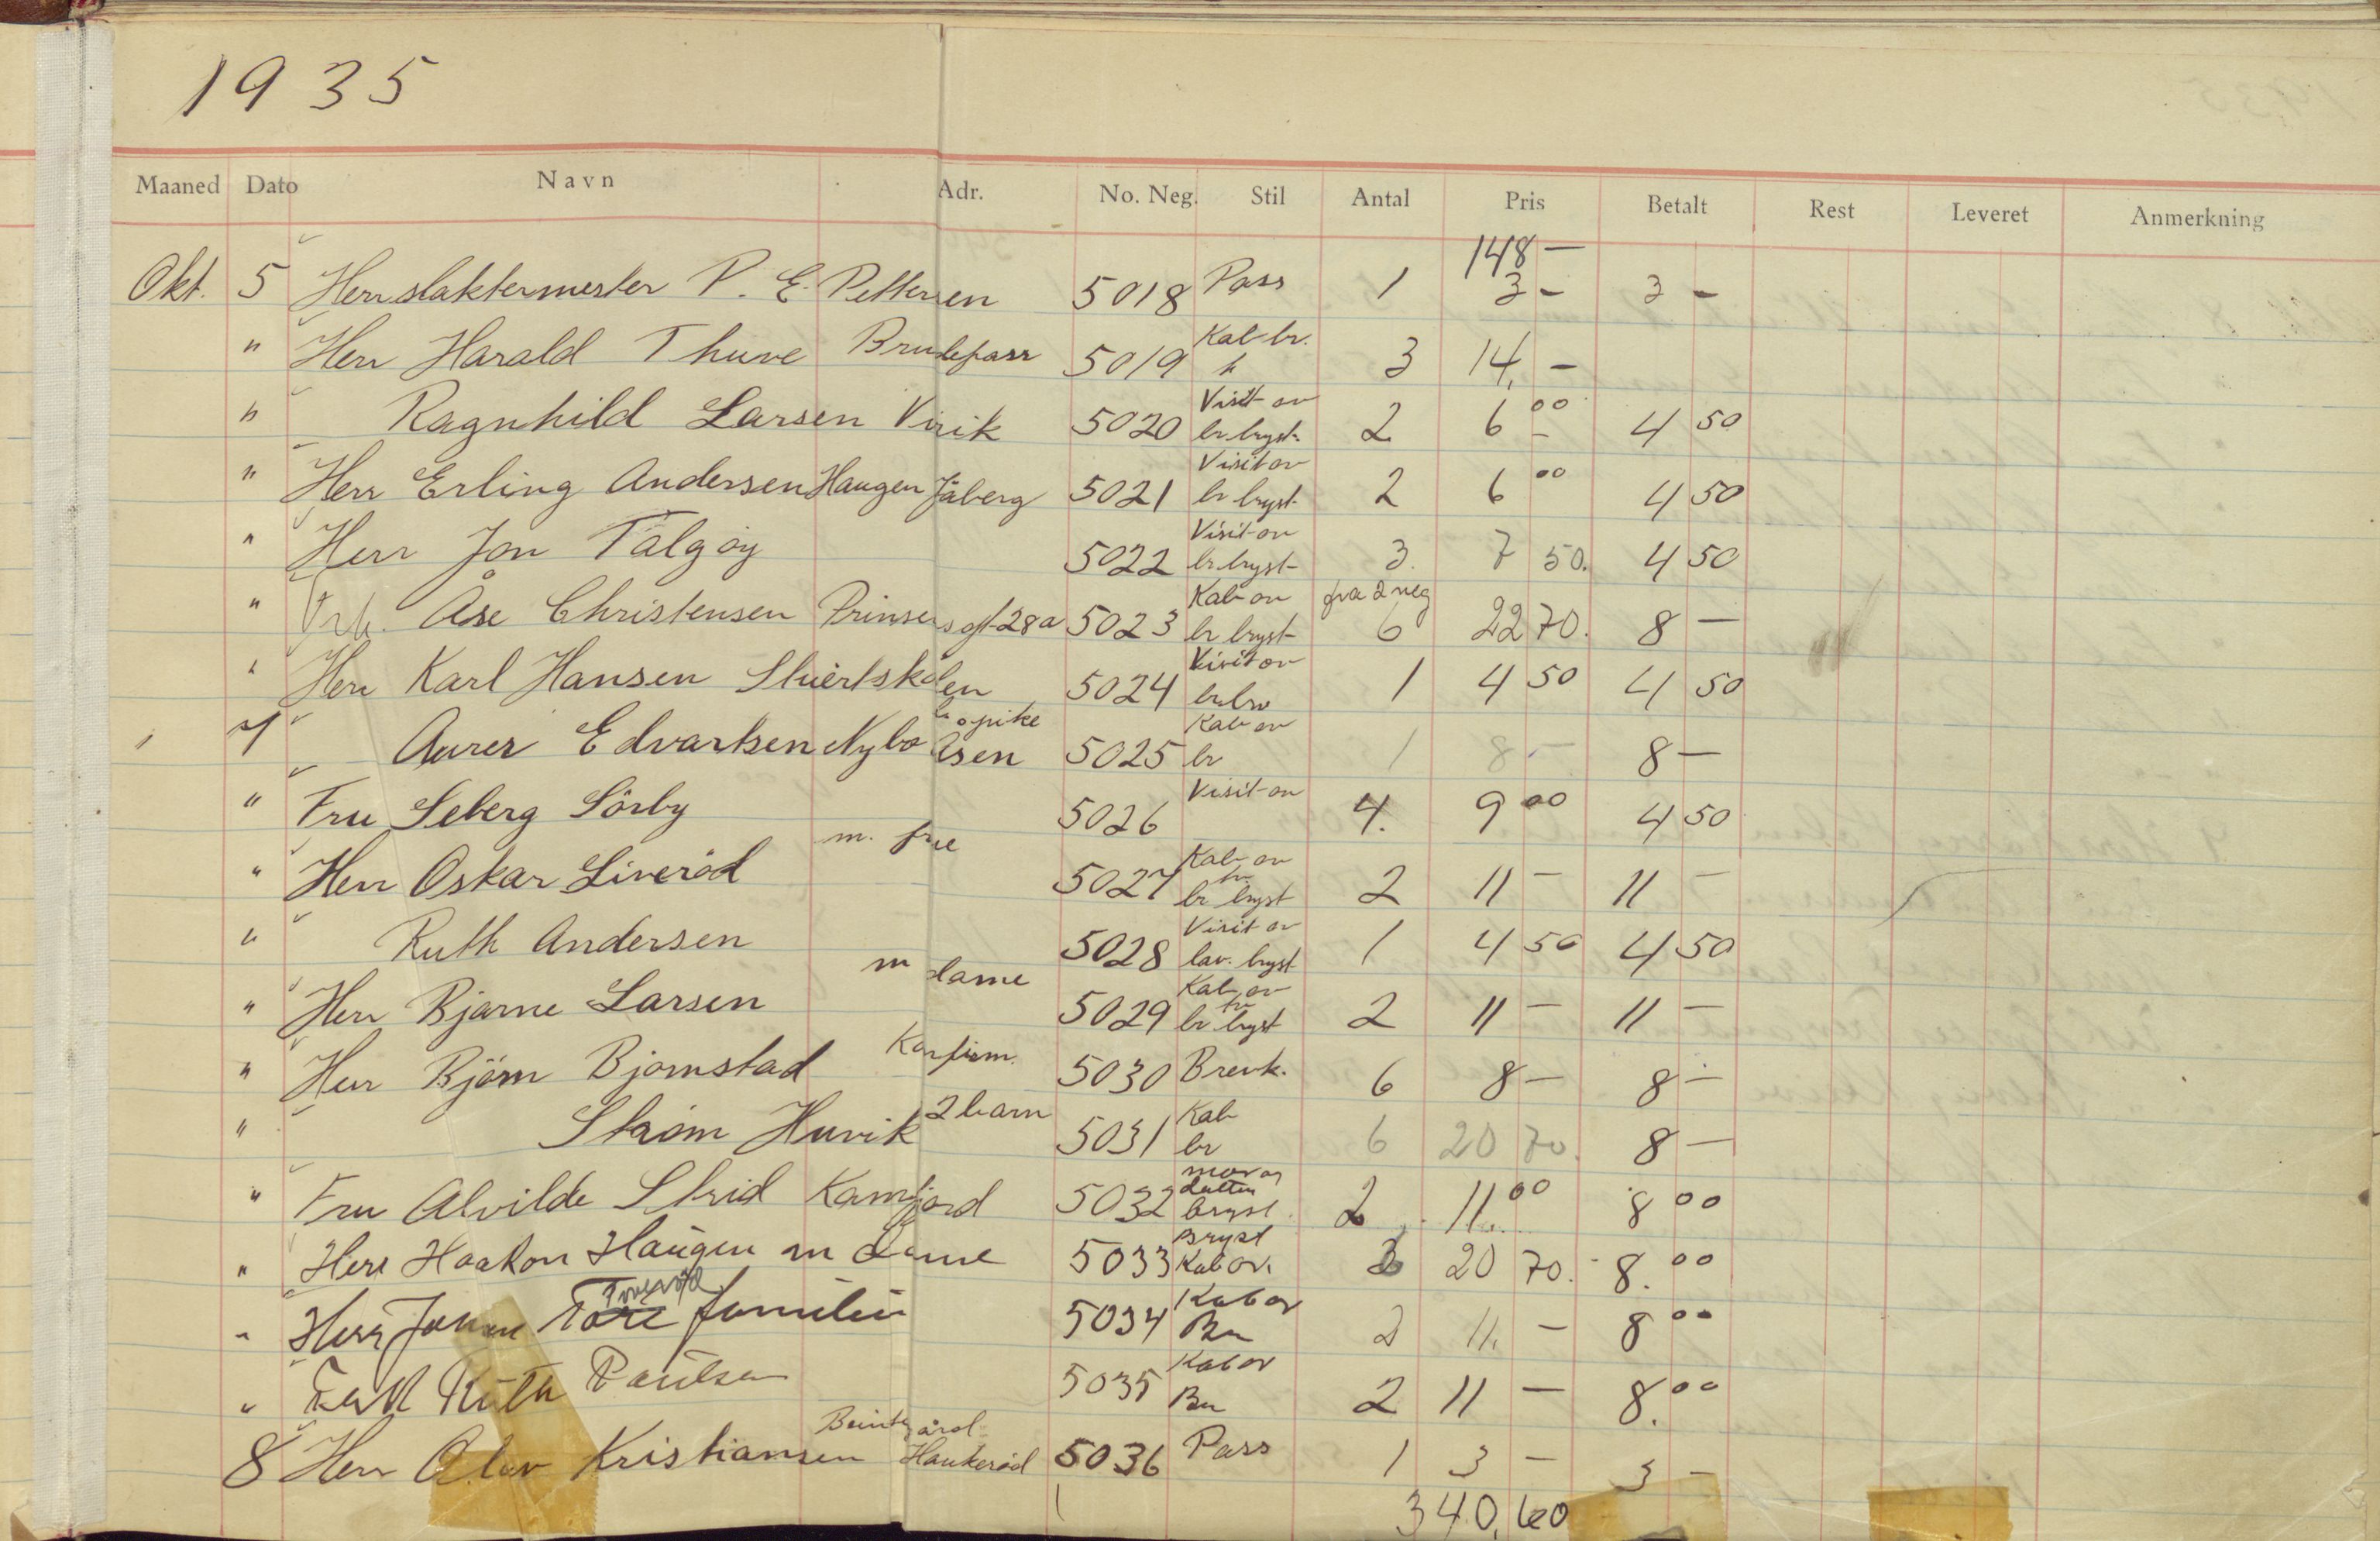 1935
Maaned Dato Navn Adr. No. Neg. Stil Antal Pris Betalt Rest Leveret Anmerkning
148 —
Okt. 5 Herr slaktermester P. E. Pettersen 5018 Pass 1 3 - 3 -
" Herr Harald Thuve Brudepar 5019 Kab br. 3 14, -
" Ragnhild Larsen Virik 5020 Visit ov br. bryst- 2 6 00 4 50
" Herr Erling Andersen Haugen Jåberg 5021 Visit ov br bryst- 2 6 00 4 50
" Herr Jon Talgøy 5022 Visit ov br. bryst- 3. 7 50. 4 50
" Frk. Åse Christensen Prinsensgt 28a 5023 Kab ov br bryst- fra 2 neg 6 22 70. 8 —
" Herr Karl Hansen 5024 Visit ov 1 4 50 4 50
7 Edvartsen 5025 Kab ov br 1 8 - 8 —
" Fru Seberg Sörby 5026 Visit ov 4. 9 00 4 50
" Herr Oskar Liveröd m. frue 5027 Kab ov br bryst 2 11 - 11 -
" Ruth Andersen 5028 Visit ov lav. bryst 1 4 50 4 50
" Herr Bjarne Larsen m dame 5029 Kab ov br bryst 2 11 - 11 -
" Herr Björn Bjørnstad Konfirm. 5030 Brevk. 6 8 — 8 -
" Strøm Huvik 2 barn 5031 Kab br 6 20 70. 8 —
" Fru Alvilde Strid Kamfjord 5032 mor og datter bryst 2 11.00 8 00
" Herr Haakon Haugen m dame 5033 Bryst Kab ov. 20 70. 8.00
" Herr familie 5034 Kab ov Br 2 11. — 8 00
" Ruth Paulsen 5035 Kab ov Br 2 11 — 8.00
8 Herr Olav Kristiansen Haukerød 5036 Pass 1 3 — 3 -
340,60